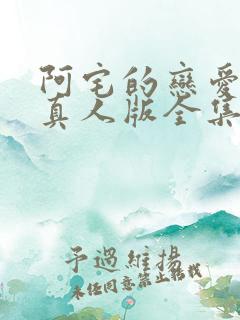 阿宅的戀愛
真人版全集
予過維揚
未经同意禁止转载